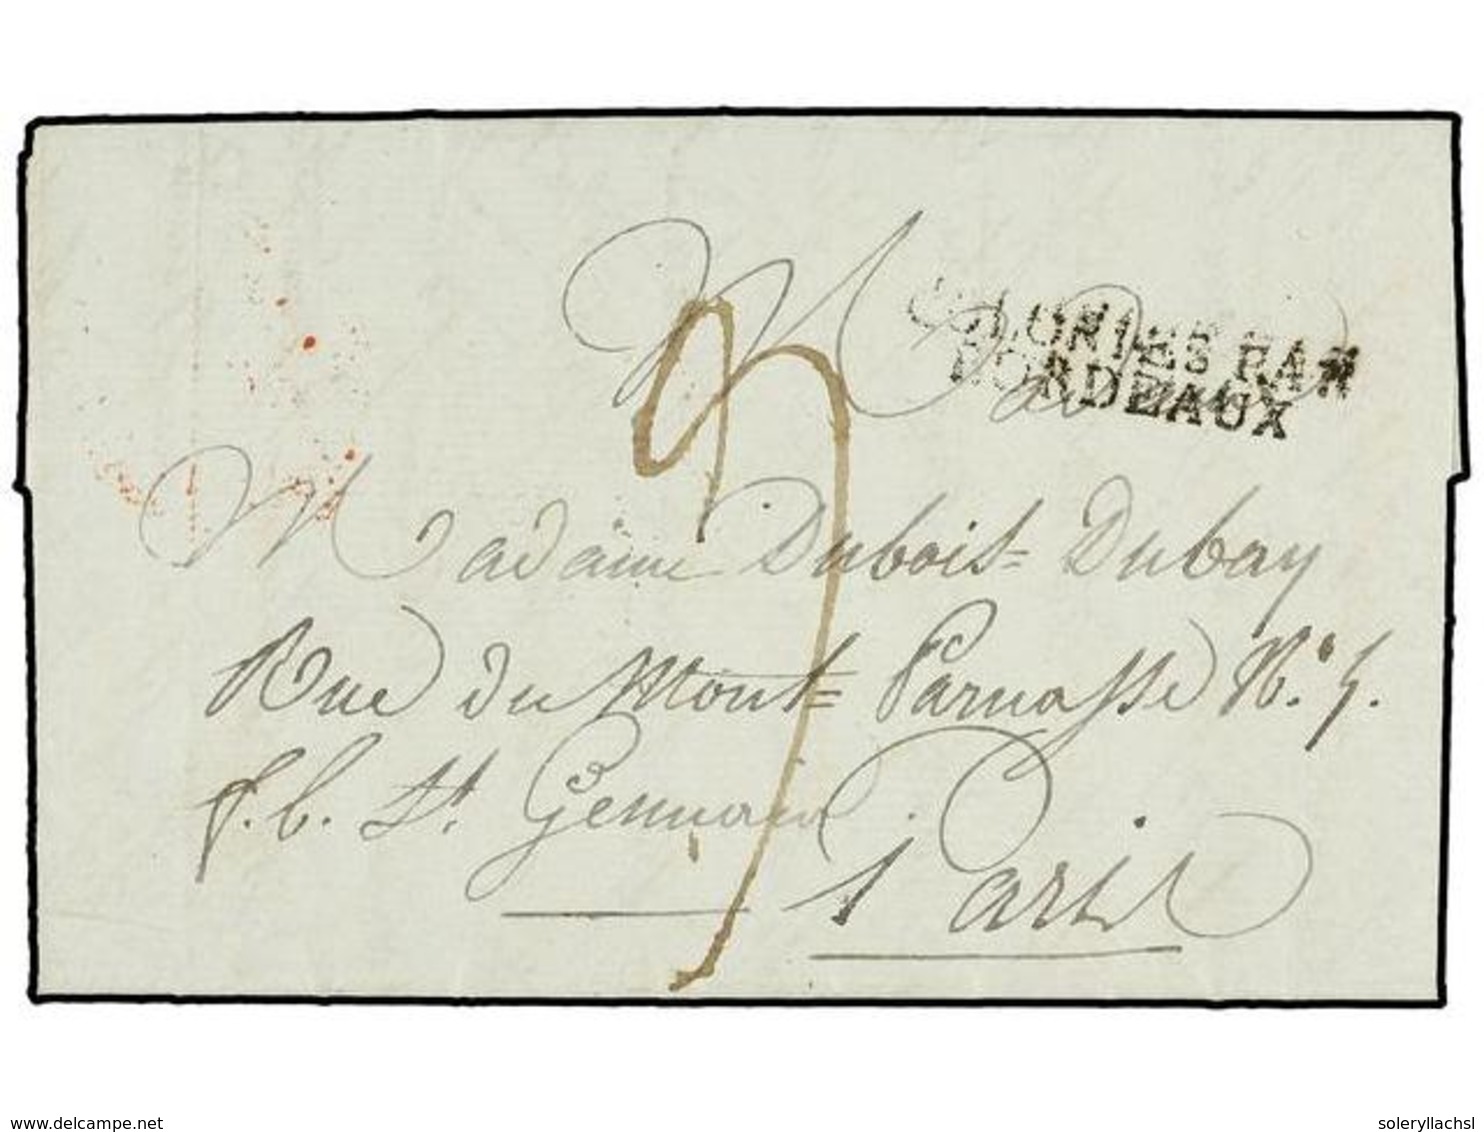 A Madame
COLONIES PAR
BORDEAUX
Madame Dubois=Dubay
Rue du Mont=Parnasse N.° 5.
f. b. St. Germain.
Paris
delcampe.net
soleryllachsl